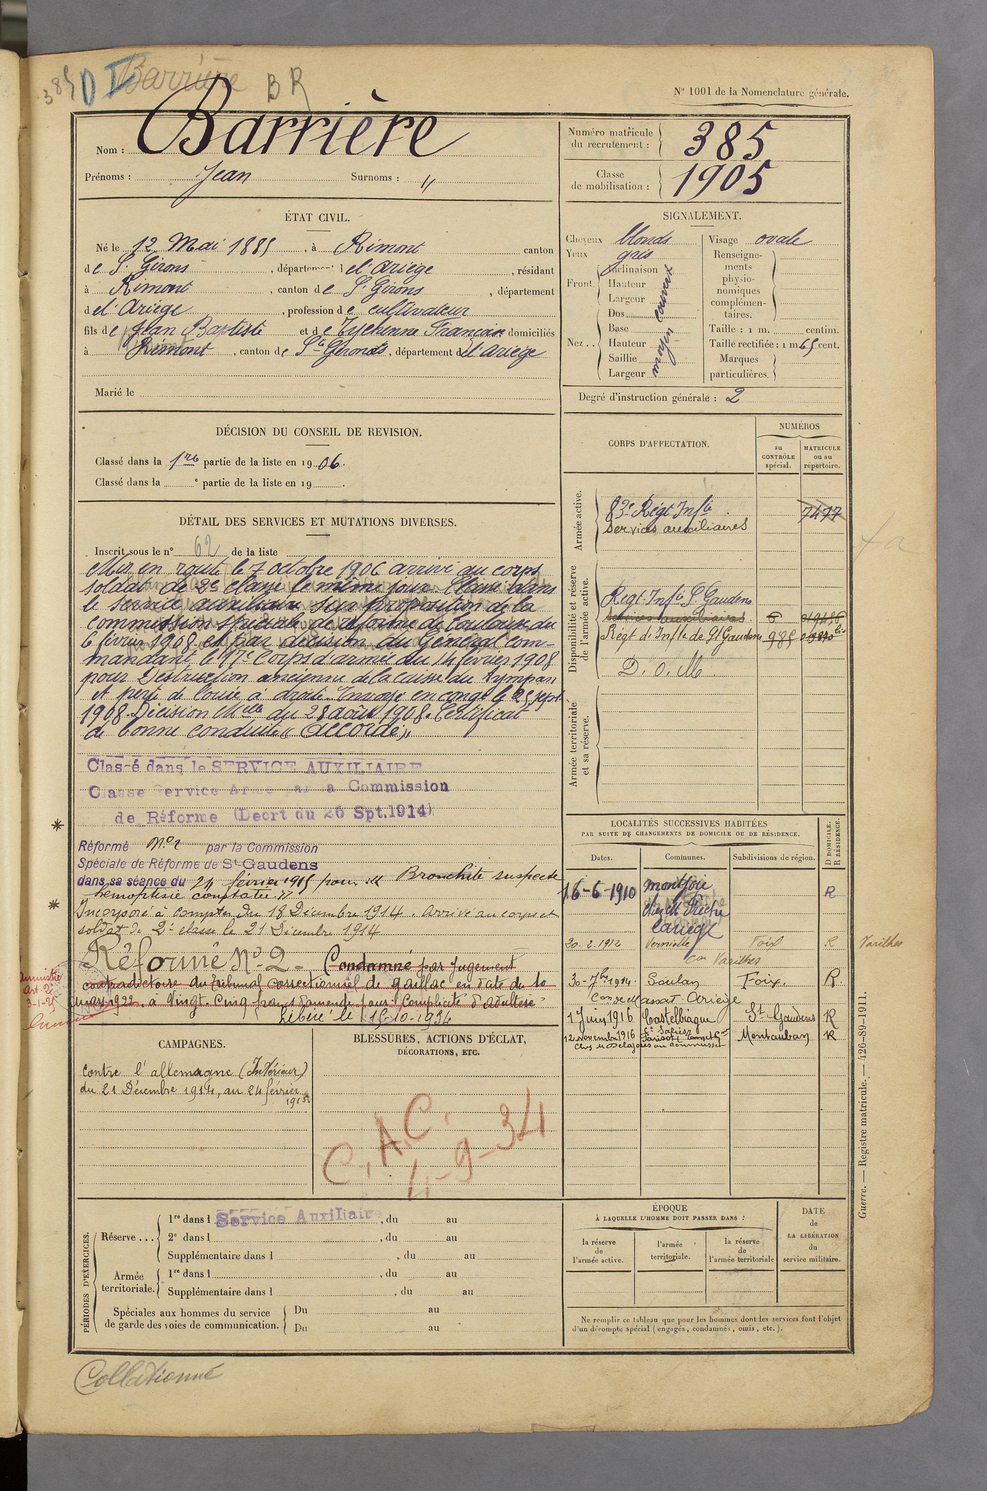 385 D Barrière BR
N° 1001 de la Nomenclature générale.
Nom : Barrière
Prénoms : Jean Surnoms : "
Numéro matricule du recrutement : 385
Classe de mobilisation : 1905
ÉTAT CIVIL.
Né le 12 Mai 1885, à Rimont canton
de St Girons, département d'Ariège, résidant
à Rimont, canton de St Girons, département
d'Ariège, profession de cultivateur
fils de Jean Baptiste et de Tychenne Françoise domiciliés
à Rimont, canton de St Girons, département d'Ariège
Marié le
SIGNALEMENT.
Cheveux blonds
Yeux gris
Front. Inclinaison
Hauteur
Largeur
Nez.. Dos
Base
Hauteur
Saillie
Largeur
moyen
Visage ovale
Renseignements physionomiques complémentaires.
Taille : 1 m. centim.
Taille rectifiée : 1 m 65 cent.
Marques particulières.
Degré d'instruction générale : 2
DÉCISION DU CONSEIL DE REVISION.
Classé dans la 1re partie de la liste en 1906.
Classé dans la e partie de la liste en 19
DÉTAIL DES SERVICES ET MUTATIONS DIVERSES.
Inscrit sous le n° 62 de la liste
Mis en route le 7 octobre 1906 arrivé au corps
soldat de 2e classe le même jour. Classé dans
le service auxiliaire sur proposition de la
commission spéciale de réforme de Toulouse du
6 février 1908 et par décision du Général com-
mandant le 17e Corps d'armée du 14 février 1908
pour Destruction ancienne de la caisse du tympan
et perte de l'ouie à droite. Envoyé en congé le 25 sept
1908. Décision Mlle du 28 août 1908. Certificat
de bonne conduite « Accordé »
Classé dans le SERVICE AUXILIAIRE
Classé Service Armé par la Commission
de Réforme (Décrt du 26 Spt.1914)
Réformé No 2 par la Commission
Spéciale de Réforme de St-Gaudens
dans sa séance du 24 février 1915 pour " Bronchite suspecte
hemoptisie constatée "
Incorporé à compter du 18 Décembre 1914. Arrivé au corps et
soldat de 2e classe le 21 Décembre 1914
Réformé No 2 - Condamné par Jugement
contradictoire du tribunal correctionnel de Gaillac en date du 10
mars 1922 à vingt-cinq francs d'amende pour "Complicité d'adultère"
Libéré le 15-10-1934
CORPS D'AFFECTATION.
NUMÉROS
au CONTRÔLE spécial.
MATRICULE ou au répertoire.
Armée active.
83e Régt Infie
Services auxiliaires
7477
Disponibilité et réserve de l'armée active.
Régt Infie St Gaudens
Services auxiliaires
Régt d'Infie de St Gaudens 985
D. O. M
Armée territoriale et sa réserve.
LOCALITÉS SUCCESSIVES HABITÉES
PAR SUITE DE CHANGEMENTS DE DOMICILE OU DE RÉSIDENCE.
Dates. Communes. Subdivisions de région. D DOMICILE. R RÉSIDENCE.
16-6-1910 Montjoie R
Ariège
20.2.1912 Verniolle Foix R Varilhes
Con Varilhes
30-7bre 1914 Soulan Foix. R.
Con de Massat Ariège
1 Juin 1916 Castelbiague St Gaudens R
Ct Salies
12 novembre 1916 Montauban R
CAMPAGNES.
Contre l'allemagne (Intérieur)
du 21 Décembre 1914, au 24 février
1915.
BLESSURES, ACTIONS D'ÉCLAT,
DÉCORATIONS, ETC.
C.A.C.
4-9-34
PÉRIODES D'EXERCICES.
Réserve... 1re dans l Service Auxiliaire, du au
2e dans l , du au
Supplémentaire dans l , du au
Armée territoriale. 1re dans l , du au
Supplémentaire dans l , du au
Spéciales aux hommes du service de garde des voies de communication. Du au
Du au
ÉPOQUE
À LAQUELLE L'HOMME DOIT PASSER DANS :
la réserve de l'armée active.
l'armée territoriale.
la réserve de l'armée territoriale
DATE de LA LIBÉRATION du service militaire.
Ne remplir ce tableau que pour les hommes dont les services font l'objet
d'un décompte spécial (engagés, condamnés, omis, etc.).
Guerre. — Registre matricule. — 426-89-1911.
Collationné